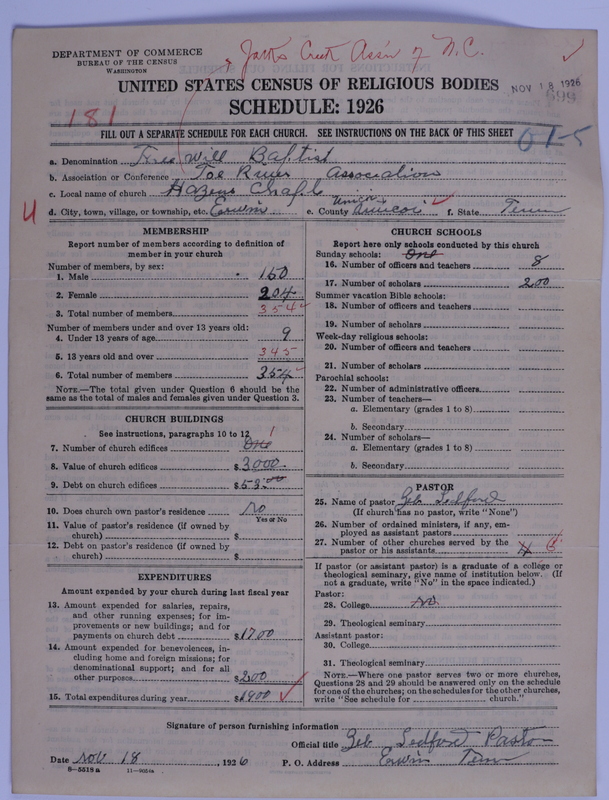 DEPARTMENT OF COMMERCE
BUREAU OF THE CENSUS
WASHINGTON
Jack's Creek Ass'n of N.C.
UNITED STATES CENSUS OF RELIGIOUS BODIES
NOV 18 1926
SCHEDULE: 1926
181
FILL OUT A SEPARATE SCHEDULE FOR EACH CHURCH. SEE INSTRUCTIONS ON THE BACK OF THIS SHEET
61-5
a. Denomination Free Will Baptist
b. Association or Conference Toe River Association
c. Local name of church Hazens Chaple
4
d. City, town, village, or township, etc. Erwin e. County Unicoi f. State Tenn
MEMBERSHIP
Report number of members according to definition of
member in your church
Number of members, by sex:
1. Male 150
2. Female 204
3. Total number of members 354
Number of members under and over 13 years old:
4. Under 13 years of age 9
5. 13 years old and over 345
6. Total number of members 354
NOTE.—The total given under Question 6 should be the
same as the total of males and females given under Question 3.
CHURCH BUILDINGS
See instructions, paragraphs 10 to 12
7. Number of church edifices One 1
8. Value of church edifices $3000.
9. Debt on church edifices $53.00
10. Does church own pastor's residence No
Yes or No
11. Value of pastor's residence (if owned by
church) $
12. Debt on pastor's residence (if owned by
church) $
EXPENDITURES
Amount expended by your church during last fiscal year
13. Amount expended for salaries, repairs,
and other running expenses; for im-
provements or new buildings; and for
payments on church debt $1700
14. Amount expended for benevolences, in-
cluding home and foreign missions; for
denominational support; and for all
other purposes $200
15. Total expenditures during year $1900
CHURCH SCHOOLS
Report here only schools conducted by this church
Sunday schools: One
16. Number of officers and teachers 8
17. Number of scholars 200
Summer vacation Bible schools:
18. Number of officers and teachers
19. Number of scholars
Week-day religious schools:
20. Number of officers and teachers
21. Number of scholars
Parochial schools:
22. Number of administrative officers
23. Number of teachers—
a. Elementary (grades 1 to 8)
b. Secondary
24. Number of scholars—
a. Elementary (grades 1 to 8)
b. Secondary
PASTOR
25. Name of pastor Geb Ledford
(If church has no pastor, write "None")
26. Number of ordained ministers, if any, em-
ployed as assistant pastors
27. Number of other churches served by the
pastor or his assistants
If pastor (or assistant pastor) is a graduate of a college or
theological seminary, give name of institution below. (If
not a graduate, write "No" in the space indicated.)
Pastor:
28. College no
29. Theological seminary
Assistant pastor:
30. College
31. Theological seminary
NOTE.—Where one pastor serves two or more churches,
Questions 28 and 29 should be answered only on the schedule
for one of the churches; on the schedules for the other churches,
write "See schedule for church."
Signature of person furnishing information
Official title Geb Ledford Pastor
Date Nov 18, 1926 P. O. Address Erwin Tenn
8—5518 a 11—9054a